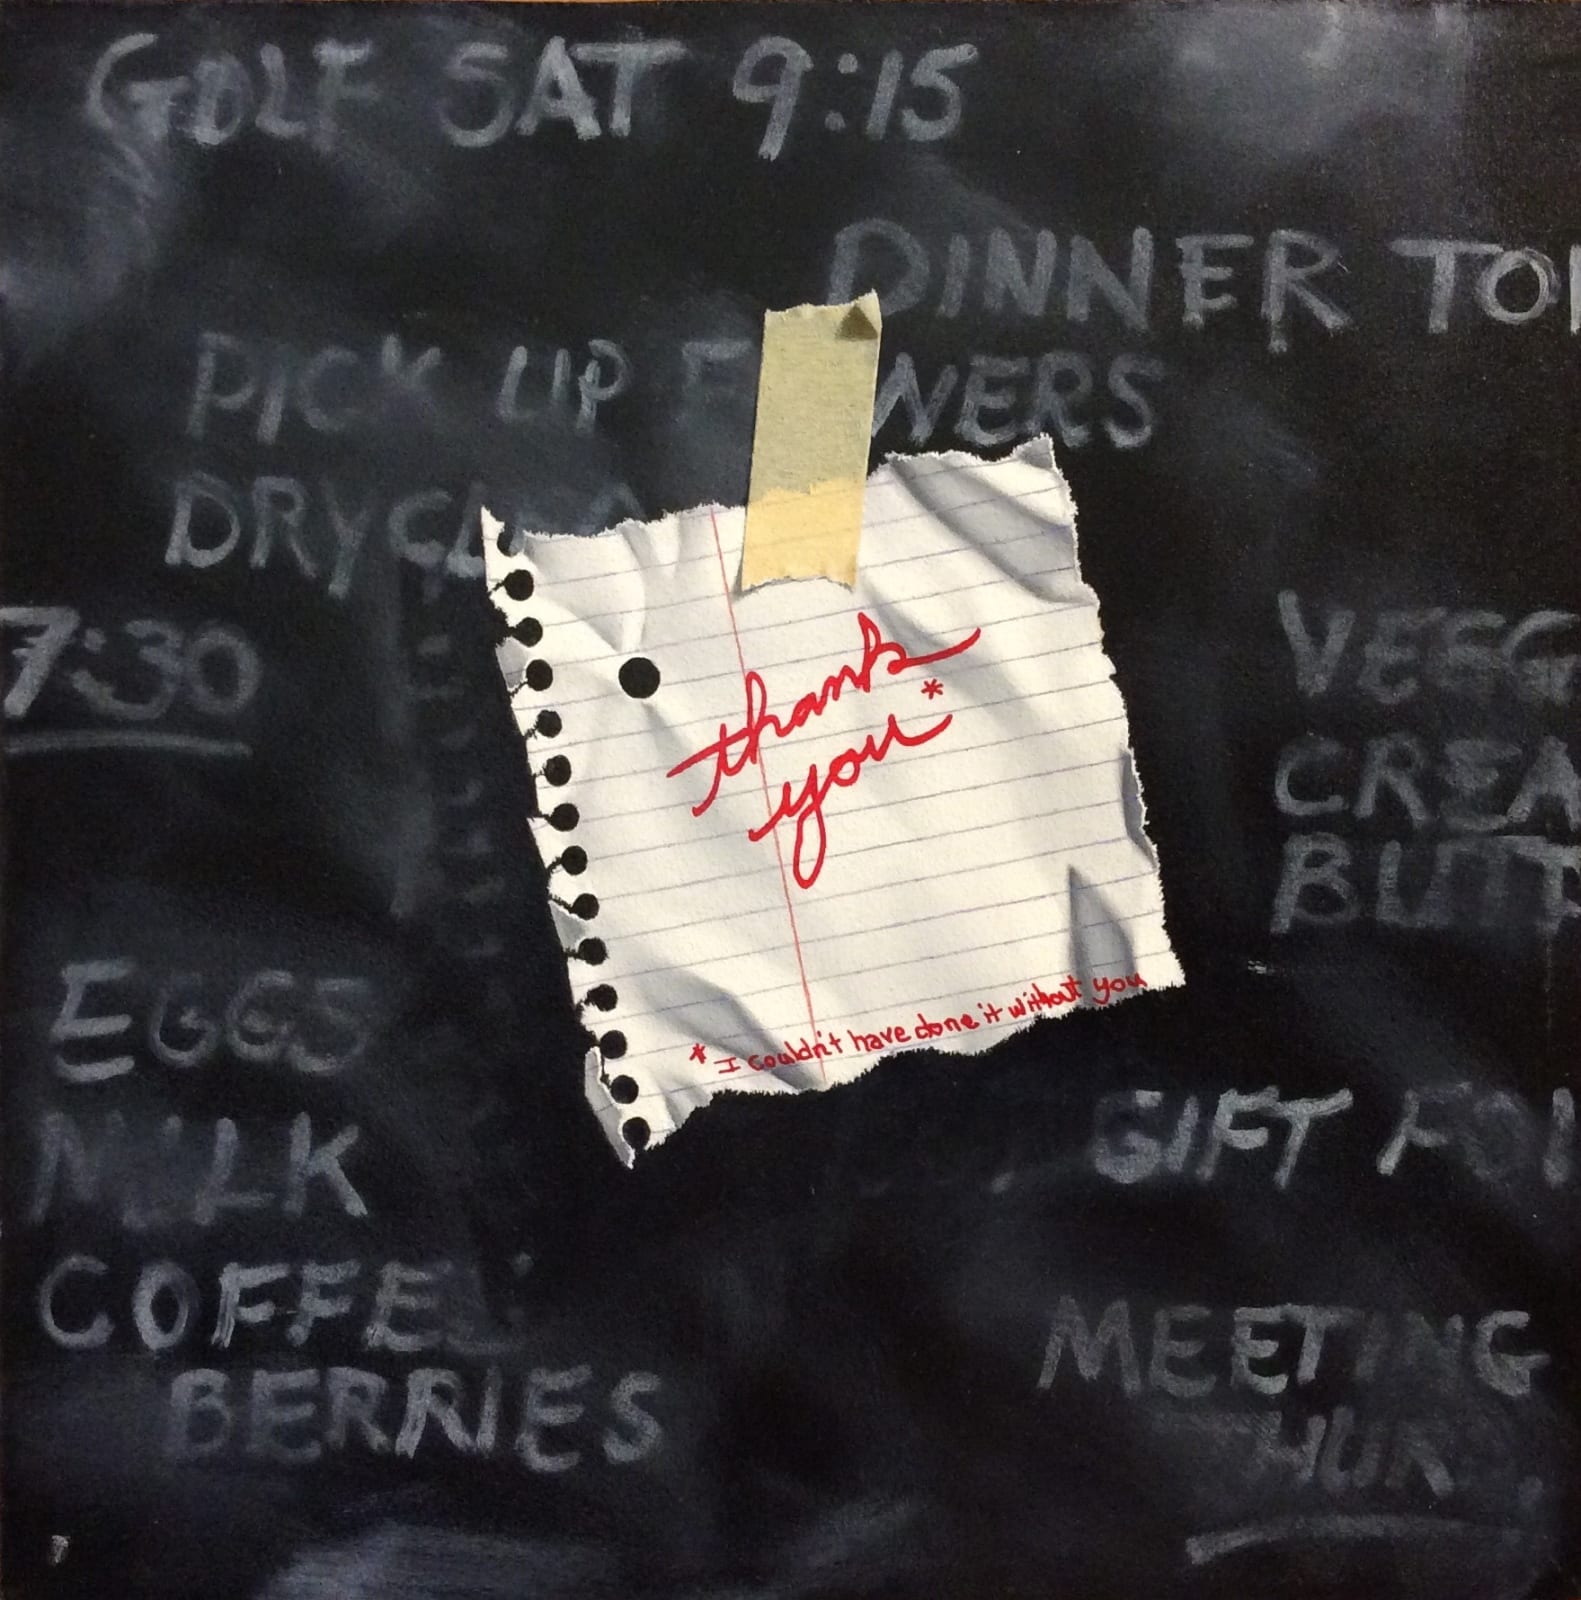 GOLF SAT 9:15
DINNER TO
PICK UP F WERS
DRYCL
7:30
thank
you*
* I couldn't have done it without you
VEGG
CREA
BUTT
EGGS
MILK
COFFEE
BERRIES
GIFT FO
MEETING